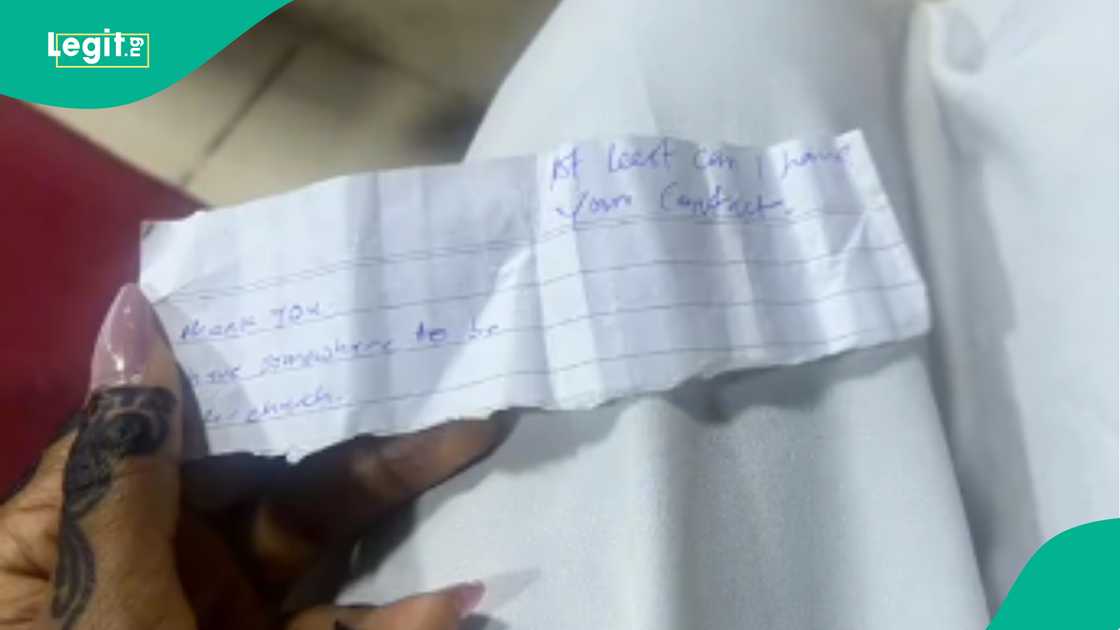 Legit.ng
At least can I have
Your Contact.
thank you
have somewhere to be
church.